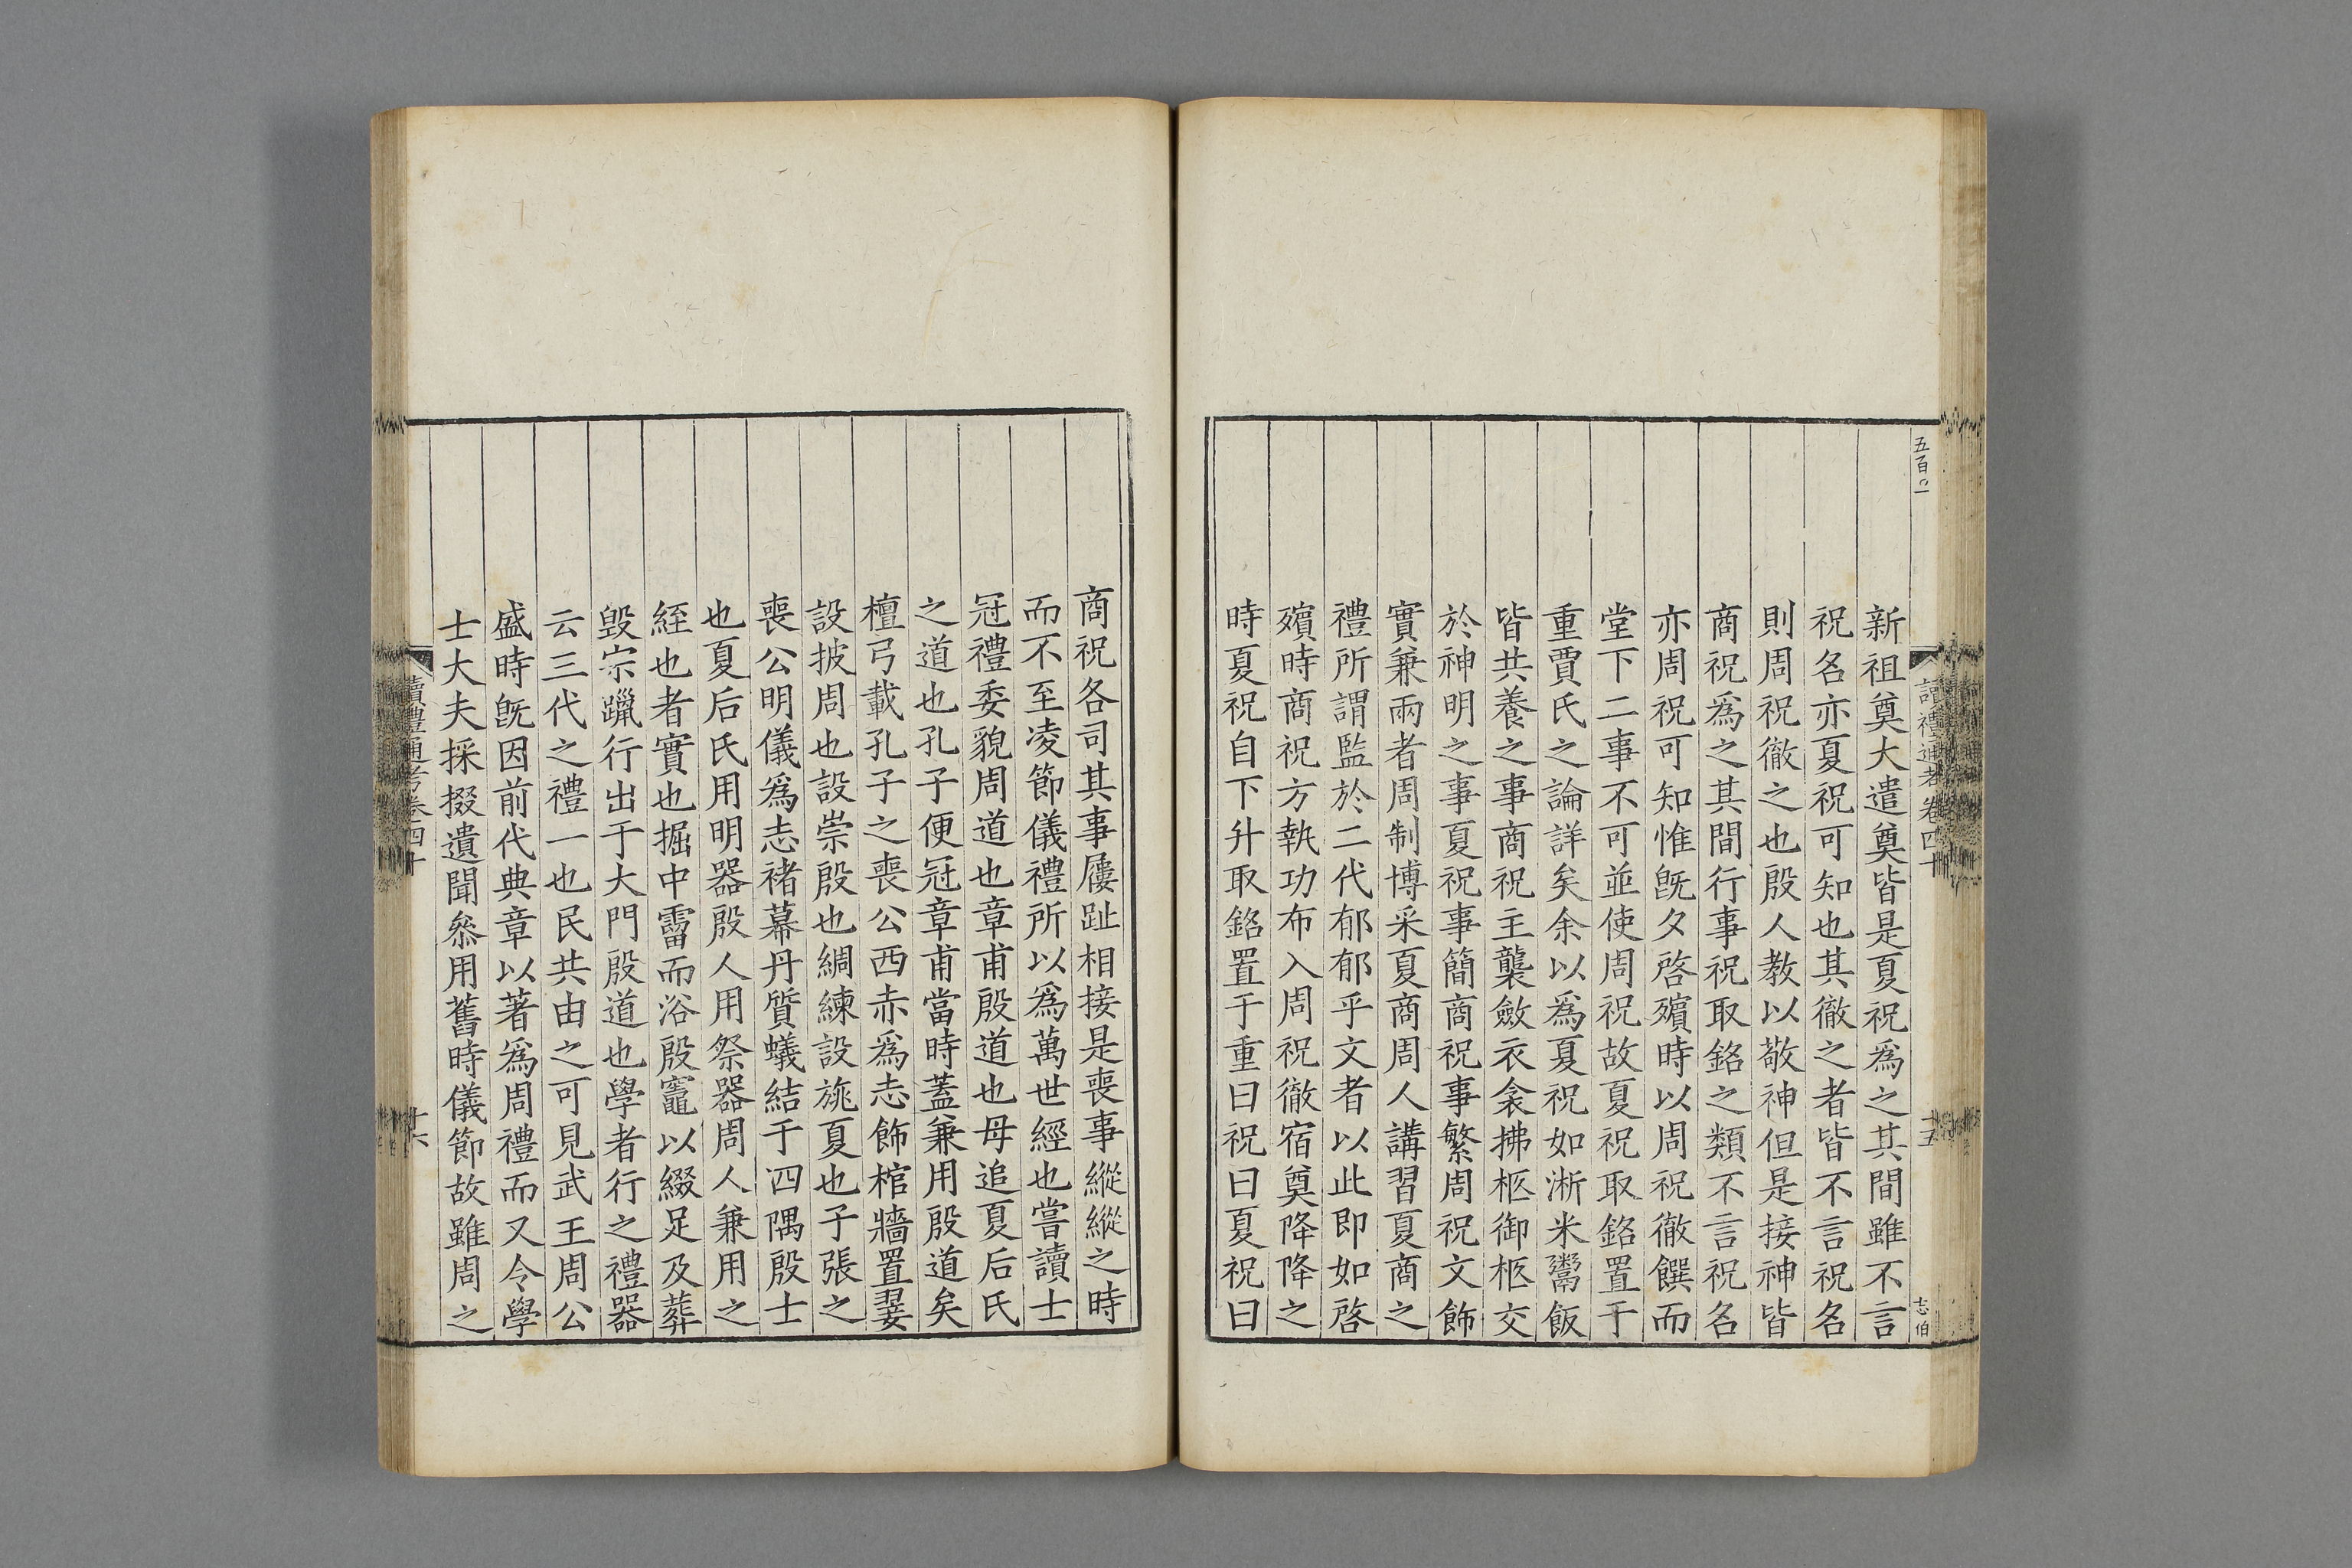 五百〇一
讀禮通考卷四十
十五
志伯
新祖奠大遣奠皆是夏祝爲之其間雖不言
祝名亦夏祝可知也其徹之者皆不言祝名
則周祝徹之也殷人教以敬神但是接神皆
商祝爲之其間行事祝取銘之類不言祝名
亦周祝可知惟旣夕啓殯時以周祝徹饌而
堂下二事不可並使周祝故夏祝取銘置于
重賈氏之論詳矣余以爲夏祝如淅米鬻飯
皆共養之事商祝主襲斂衣衾拂柩御柩交
於神明之事夏祝事簡商祝事繁周祝文飾
實兼兩者周制博采夏商周人講習夏商之
禮所謂監於二代郁郁乎文者以此即如啓
殯時商祝方執功布入周祝徹宿奠降降之
時夏祝自下升取銘置于重曰祝曰夏祝曰
商祝各司其事屨趾相接是喪事縱縱之時
而不至凌節儀禮所以爲萬世經也嘗讀士
冠禮委貌周道也章甫殷道也母追夏后氏
之道也孔子便冠章甫當時蓋兼用殷道矣
檀弓載孔子之喪公西赤爲志飾棺牆置翣
設披周也設崇殷也綢練設旐夏也子張之
喪公明儀爲志褚幕丹質蟻結于四隅殷士
也夏后氏用明器殷人用祭器周人兼用之
絰也者實也掘中霤而浴殷竈以綴足及葬
毁宗躐行出于大門殷道也學者行之禮器
云三代之禮一也民共由之可見武王周公
盛時旣因前代典章以著爲周禮而又令學
士大夫採掇遺聞叅用舊時儀節故雖周之
讀禮通考卷四十
十六